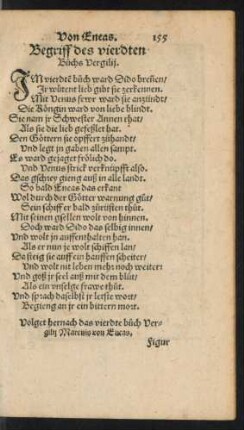 Von Eneas. 155
Begriff des vierdten
Bůchs Vergilij.
IM vierdtē bůch ward Dido breñen/
Jr wůtent lieb gibt sie zerkennen.
Mit Venus fewr ward sie anzündt/
Die Köngin ward von liebe blindt.
Sie nam jr Schwester Annen rhat/
Als sie die lieb gefeßlet hat.
Den Göttern sie opffert zůhandt/
Und legt jn gaben allen sampt.
Es ward gejaget frölich do.
Und Venus strick verknüpfft also.
Das gschrey gieng auß in alle landt.
So bald Eneas das erkant
Wol durch der Götter warnung gůt/
Sein schiff er bald zůrüsten thůt.
Mit seinen gsellen wolt von hinnen.
Doch ward Dido das selbig innen/
Und wolt jn auffenthalten han.
Als er nun je wolt schiffen lan/
Da steig sie auff ein hauffen scheiter/
Und wolt nit leben mehr noch weiter:
Und goß jr seel auß mit dem blůt/
Als ein vnselge frawe thůt.
Und sprach daselbst jr letste wort/
Begieng an jr ein bittern mort.
Volget hernach das vierdte bůch Ver-
gilij Maronis von Eneas.
Figur